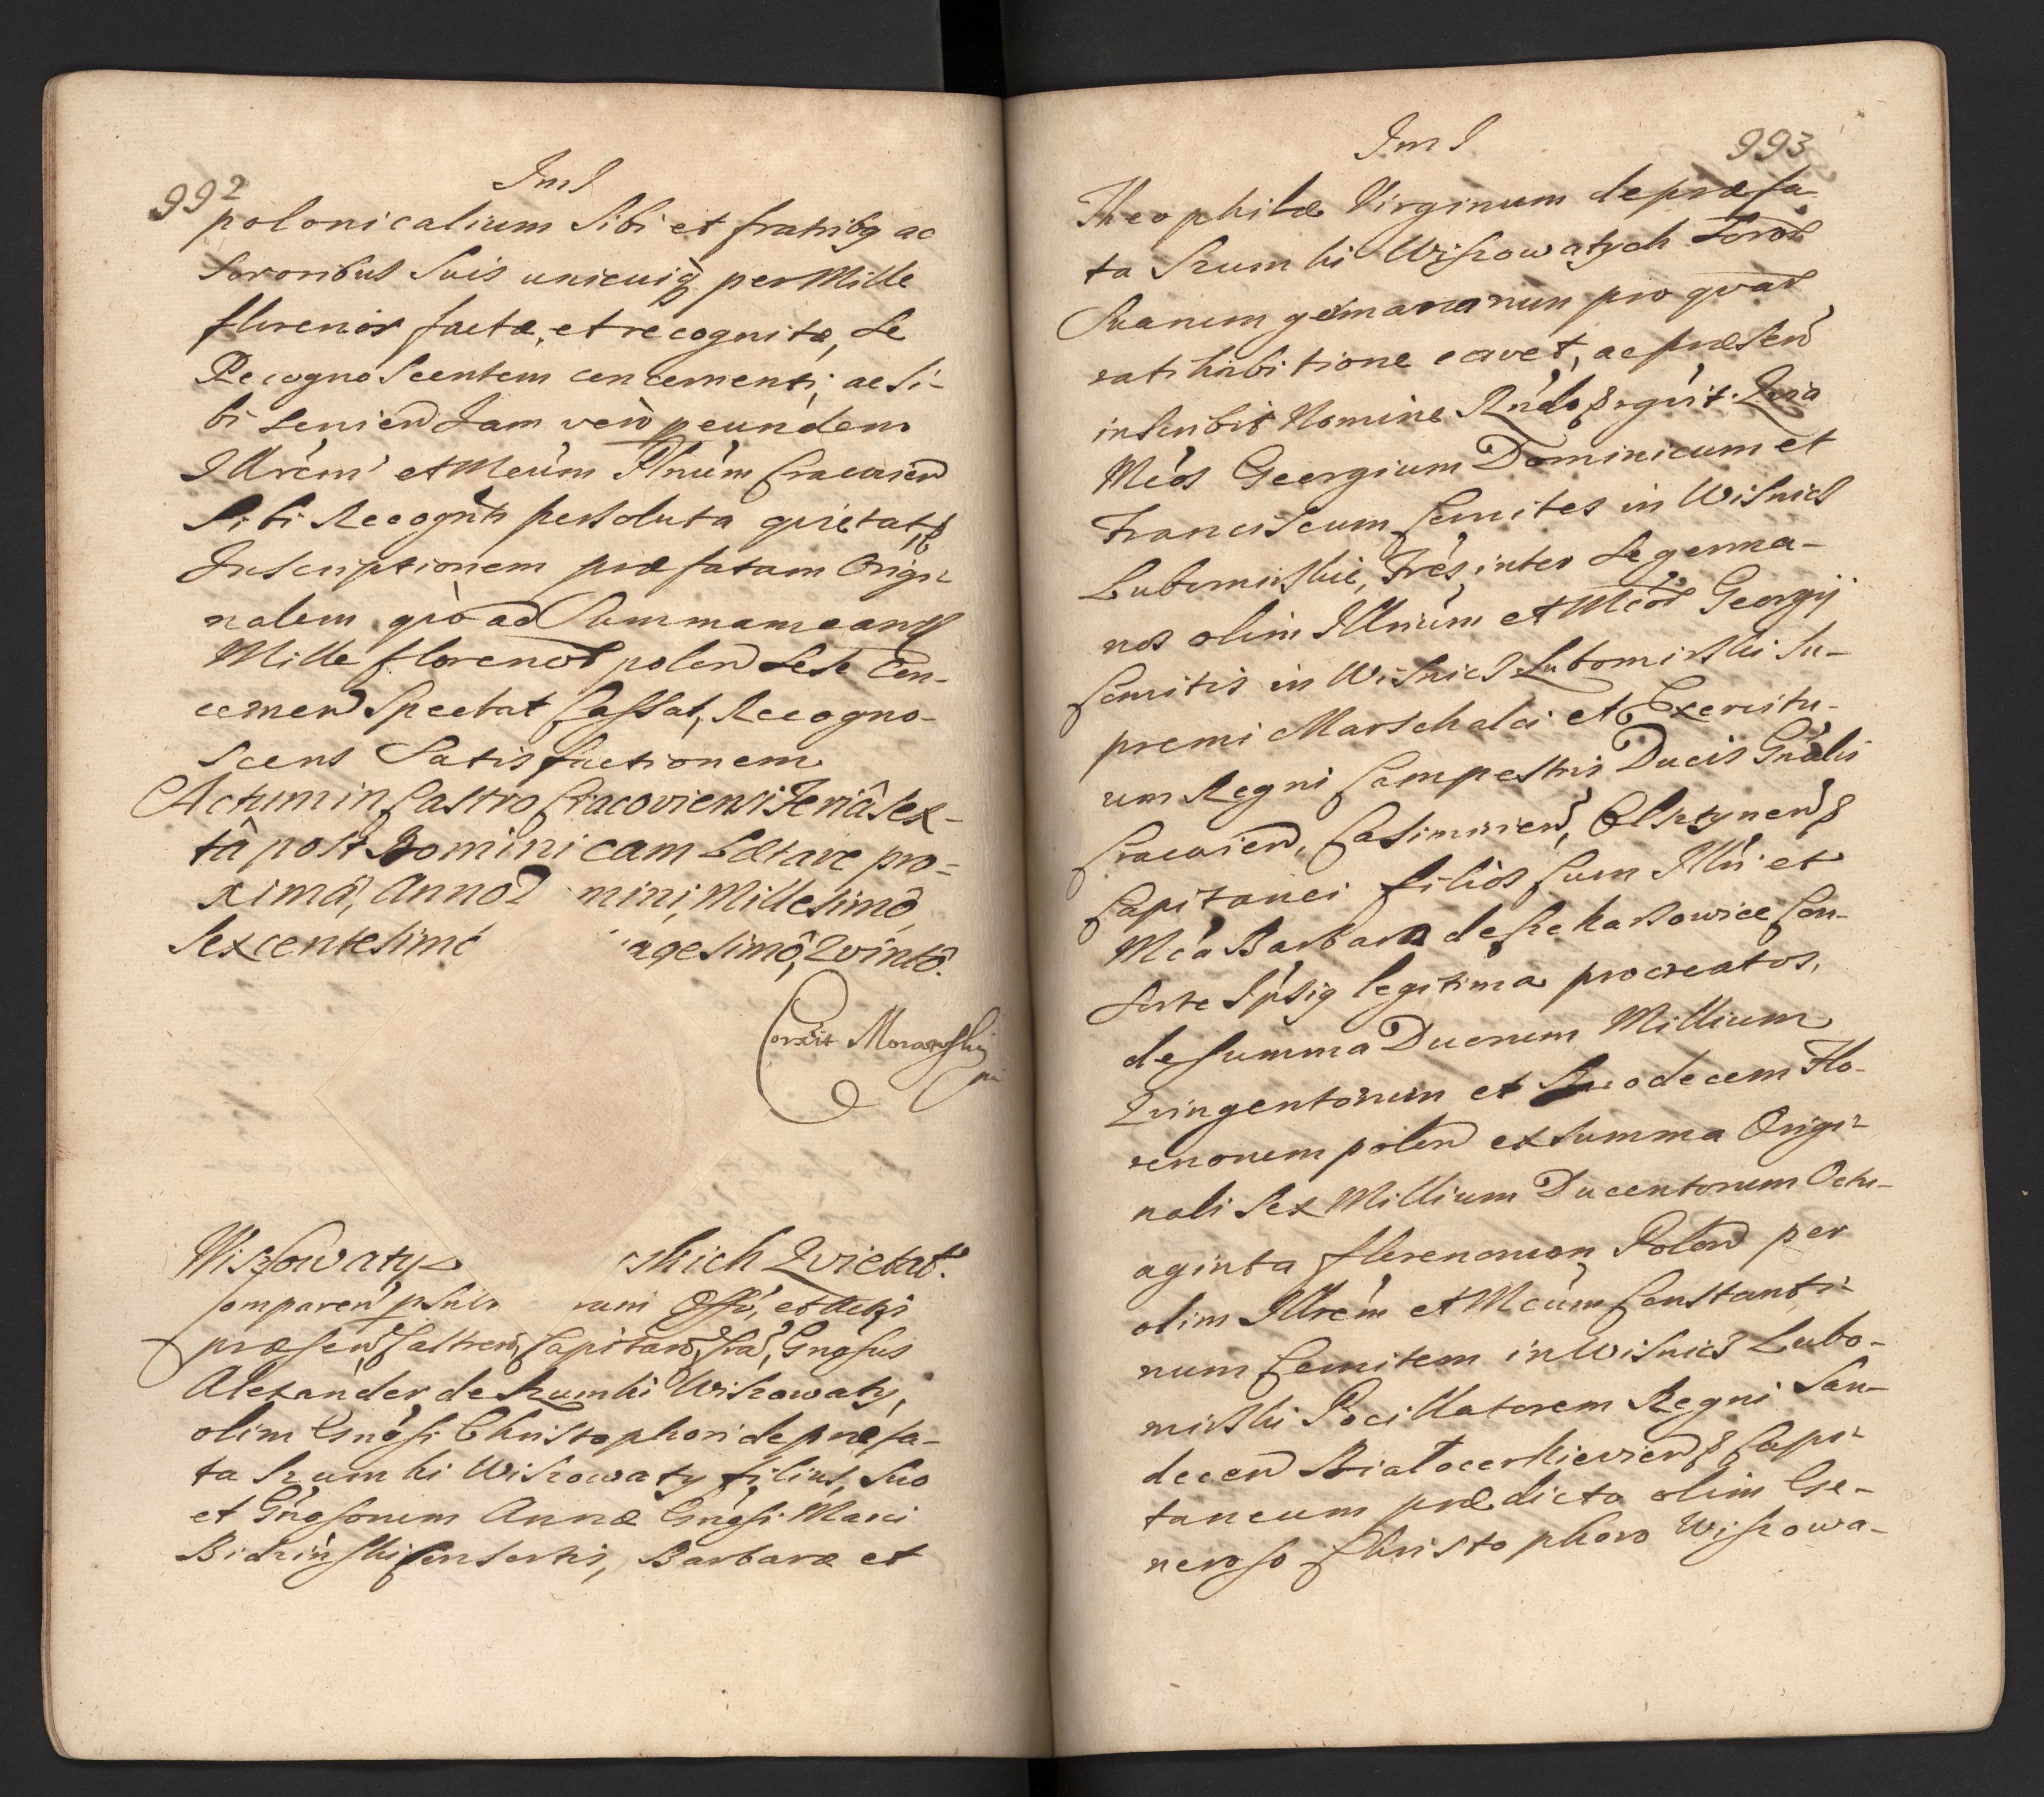 992
Jml
polonicalium Sibi et fratribq ac
Sororibus Suis unicuiq per Mille
florenos factæ, et recognitæ, Se
Recognoscentem concernenti, ac Si-
bi Servien Jam verò p eundem
Illrem et Mcum Dnum Cracovien
Sibi Recognti persoluta quietat, &
Inscriptionem præfatam Origi-
nalem qvò ad Summam eand
Mille florenos polon Sese Con-
cernen Spectat Cassat, Recogno-
scens Satisfactionem
Actum in Castro Cracoviensi Feriâ Sex-
tâ post Dominicam Lætare pro-
ximâ, Anno D mini, Millesimô
Sexcentesimô agesimô, Qvintô.
Correxit
Wiszowaty skich Qvietat.
Comparen rum Offo, et Actis
præsen Castren Capitan Cra, Gnosus
Alexander de Szumki Wiszowaty,
olim Gnosi Christophori de præfa-
ta Szumki Wiszowaty filius, Suo
et Gnosorum Annæ Gnosi Marci
Consortis, Barbaræ et
Jml
993
Theophilæ Virginum de præfa-
ta Szumki Wiszowatych Soror
Suarum germanarum pro qvar
ratihabitione cavet, ac præsen
inscribit Nomine
Mcos Georgium Dominicum et
Franciscum Comites in Wisnicz
Lubomirskie, Fres inter Se germa-
nos olim Illrium et Mcor Georgij
Comitis in Wisnicz Lubomirski Su-
premi Marschalci et Exercitu-
um Regni Campestris Ducis Gnalis
Cracovien, Casimirien, Olsztynen &
Capitanei filios Cum Illri et
Mca Barbara de Con-
sorte Ipsiq legitima procreatos,
de Summa Duorum Millium
Qvingentorum et Duodecem Flo-
renorum polon ex Summa Origi-
nali Sex Millium Ducentorum Octu-
aginta florenorum Polon per
olim Illrem et Mcum Constanti-
num Comitem in Wisnicz Lubo-
mirski Pocillatorem Regni San-
decen Białocerkievien & Capi-
taneum prædicto olim Ge-
neroso Christophoro Wiszowa-